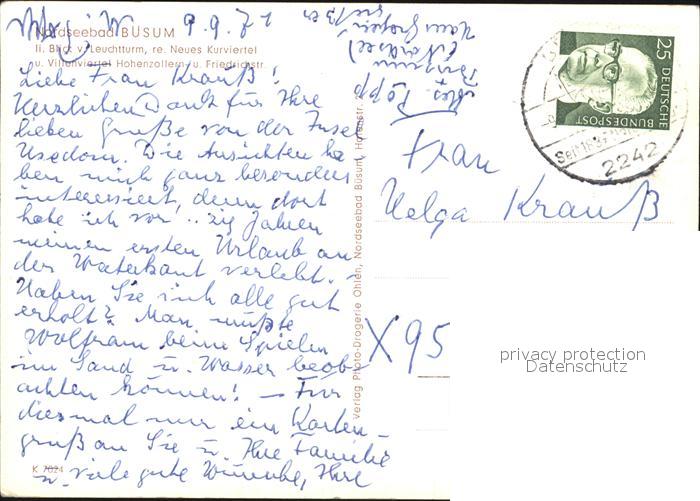 Nordseebad BÜSUM
li. Blick v. Leuchtturm, re. Neues Kurviertel
u. Villenviertel Hohenzollern- u. Friedrichstr.
Liebe Frau Krauß!
Herzlichen Dank für Ihre
lieben Grüße von der Insel
Usedom. Die Ansichten ha
ben mich ganz besonders
interessiert, denn dort
habe ich vor ..zig Jahren
meinen ersten Urlaub an
der Waterkant verlebt. -
Haben Sie sich alle gut
erholt? Man müßte
Wolfram beim Spielen
im Sand u. Wasser beob-
achten können! - Für
diesmal nur ein Karten-
gruß an Sie u. Ihre Familie
u. viele gute Wünsche, Ihre
K 7024
Verlag Photo-Drogerie Ohlen, Nordseebad Büsum, Hohenstr.
Abs. Popp
Büsum
(Nordsee)
Haus
25
DEUTSCHE
BUNDESPOST
2242
Frau
Helga Krauß
X95
privacy protection
Datenschutz